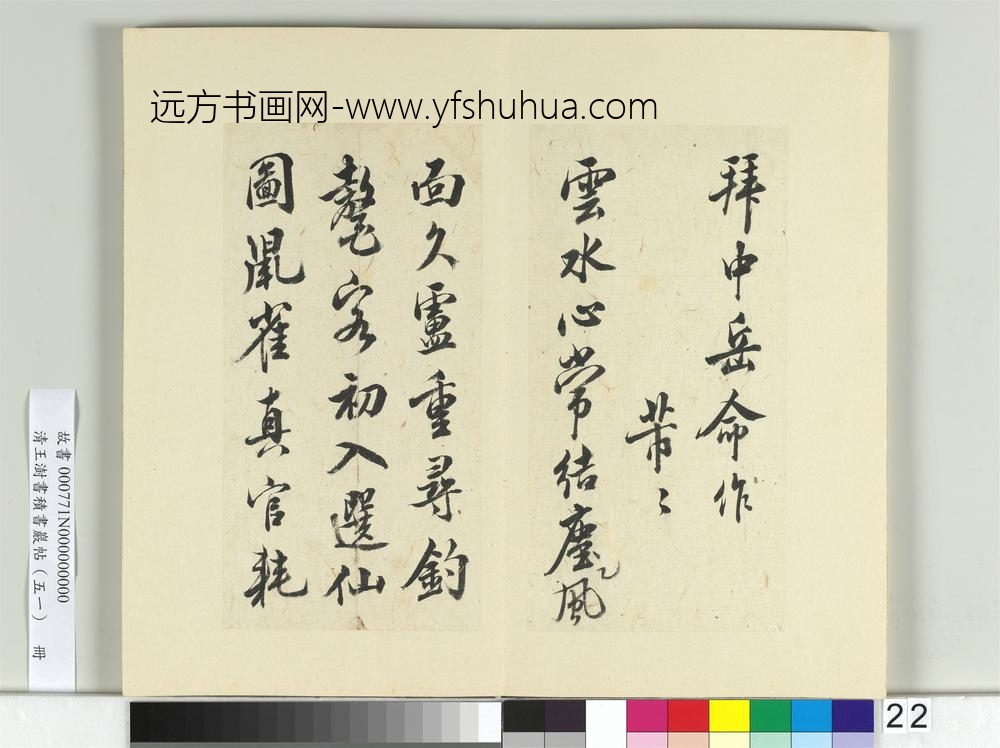 远方书画网-www.yfshuhua.com
拜中岳命作
芾〻
雲水心常結塵風
面久盧重尋釣
鼇客初入選仙
圖鼠雀真官耗
故書 000771N000000000
清王澍書積書巖帖（五一） 冊
22